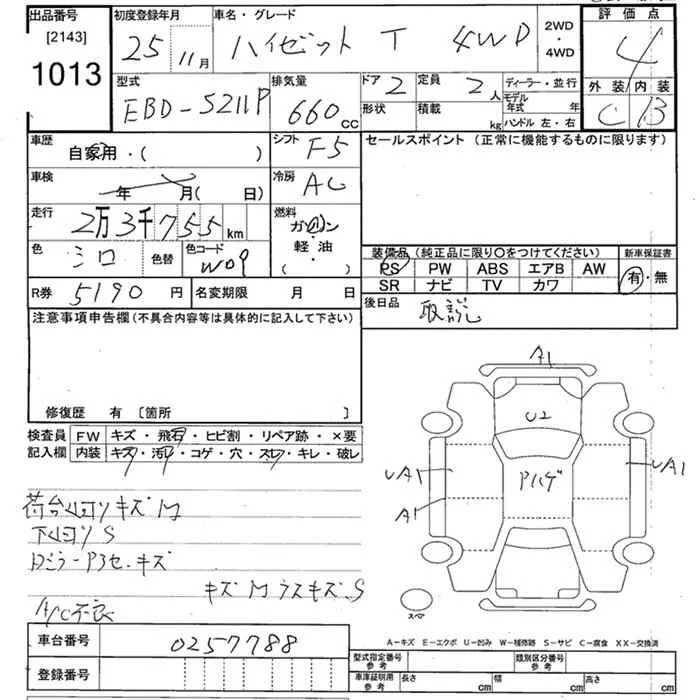 出品番号 初度登録年月 車名・グレード 2WD・4WD 評価点
[2143] 25 11月 ハイゼット T 4WD 4
1013 外装 内装
C B
型式 排気量 ドア 2 定員 2人 ディーラー・並行
EBD-S211P 660cc 形状 積載 kg モデル年式 年
ハンドル 左・右
車歴 シフト F5 セールスポイント (正常に機能するものに限ります)
自家用・( )
車検 年 月( 日) 冷房 AC
走行 2万3千755km 燃料 ガソリン・軽油・( )
色 シロ 色替 色コード W09 装備品 (純正品に限り○をつけてください) 新車保証書
PS PW ABS エアB AW 有・無
SR ナビ TV カワ
R券 5190円 名変期限 月 日 後日品 取説
注意事項申告欄(不具合内容等は具体的に記入して下さい)
修復歴 有 〔箇所 〕
検査員 FW キズ・飛石・ヒビ割・リペア跡・×要
記入欄 内装 キズ・汚レ・コゲ・穴・スレ・キレ・破レ
A1
U2
UA1 Pハゲ UA1
A1
荷台凹ヨリキズM
下凹ヨリS
キズM ラスキズ.S
A/C不良
スペア
A-キズ E-エクボ U-凹み W-補修跡 S-サビ C-腐食 XX-交換済
車台番号 0257788
登録番号
型式指定番号 参考 類別区分番号 参考
車庫証明用 参考 長さ cm 幅 cm 高さ cm